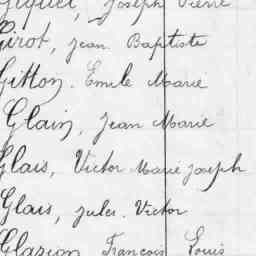 Giquel, Joseph Pierre
Girot, Jean Baptiste
Gitton. Emile Marie
Glain, Jean Marie
Glais, Victor Marie Joseph
Glais, Jules. Victor
Glazion François Louis